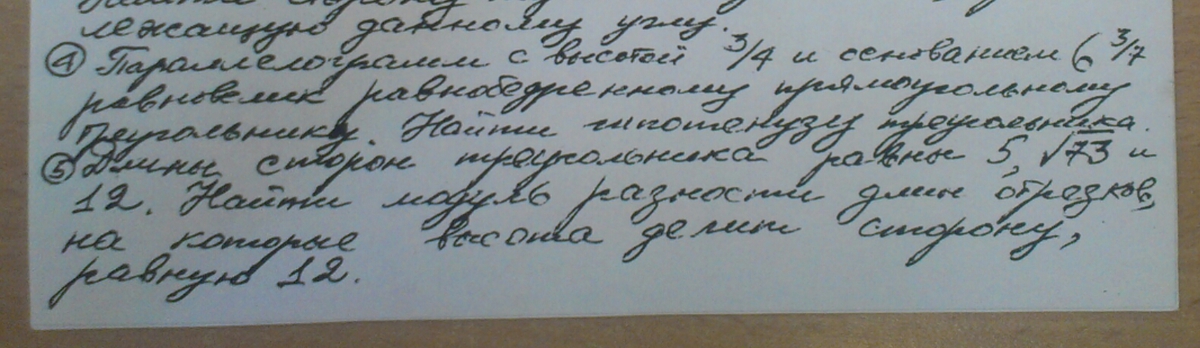 лежащую данному углу.
④ Параллелограмм с высотой 3/4 и основанием 6 3/7
равновелик равнобедренному прямоугольному
треугольнику. Найти гипотенузу треугольника.
⑤ Длины сторон треугольника равны 5, √73 и
12. Найти модуль разности длин отрезков,
на которые высота делит сторону,
равную 12.